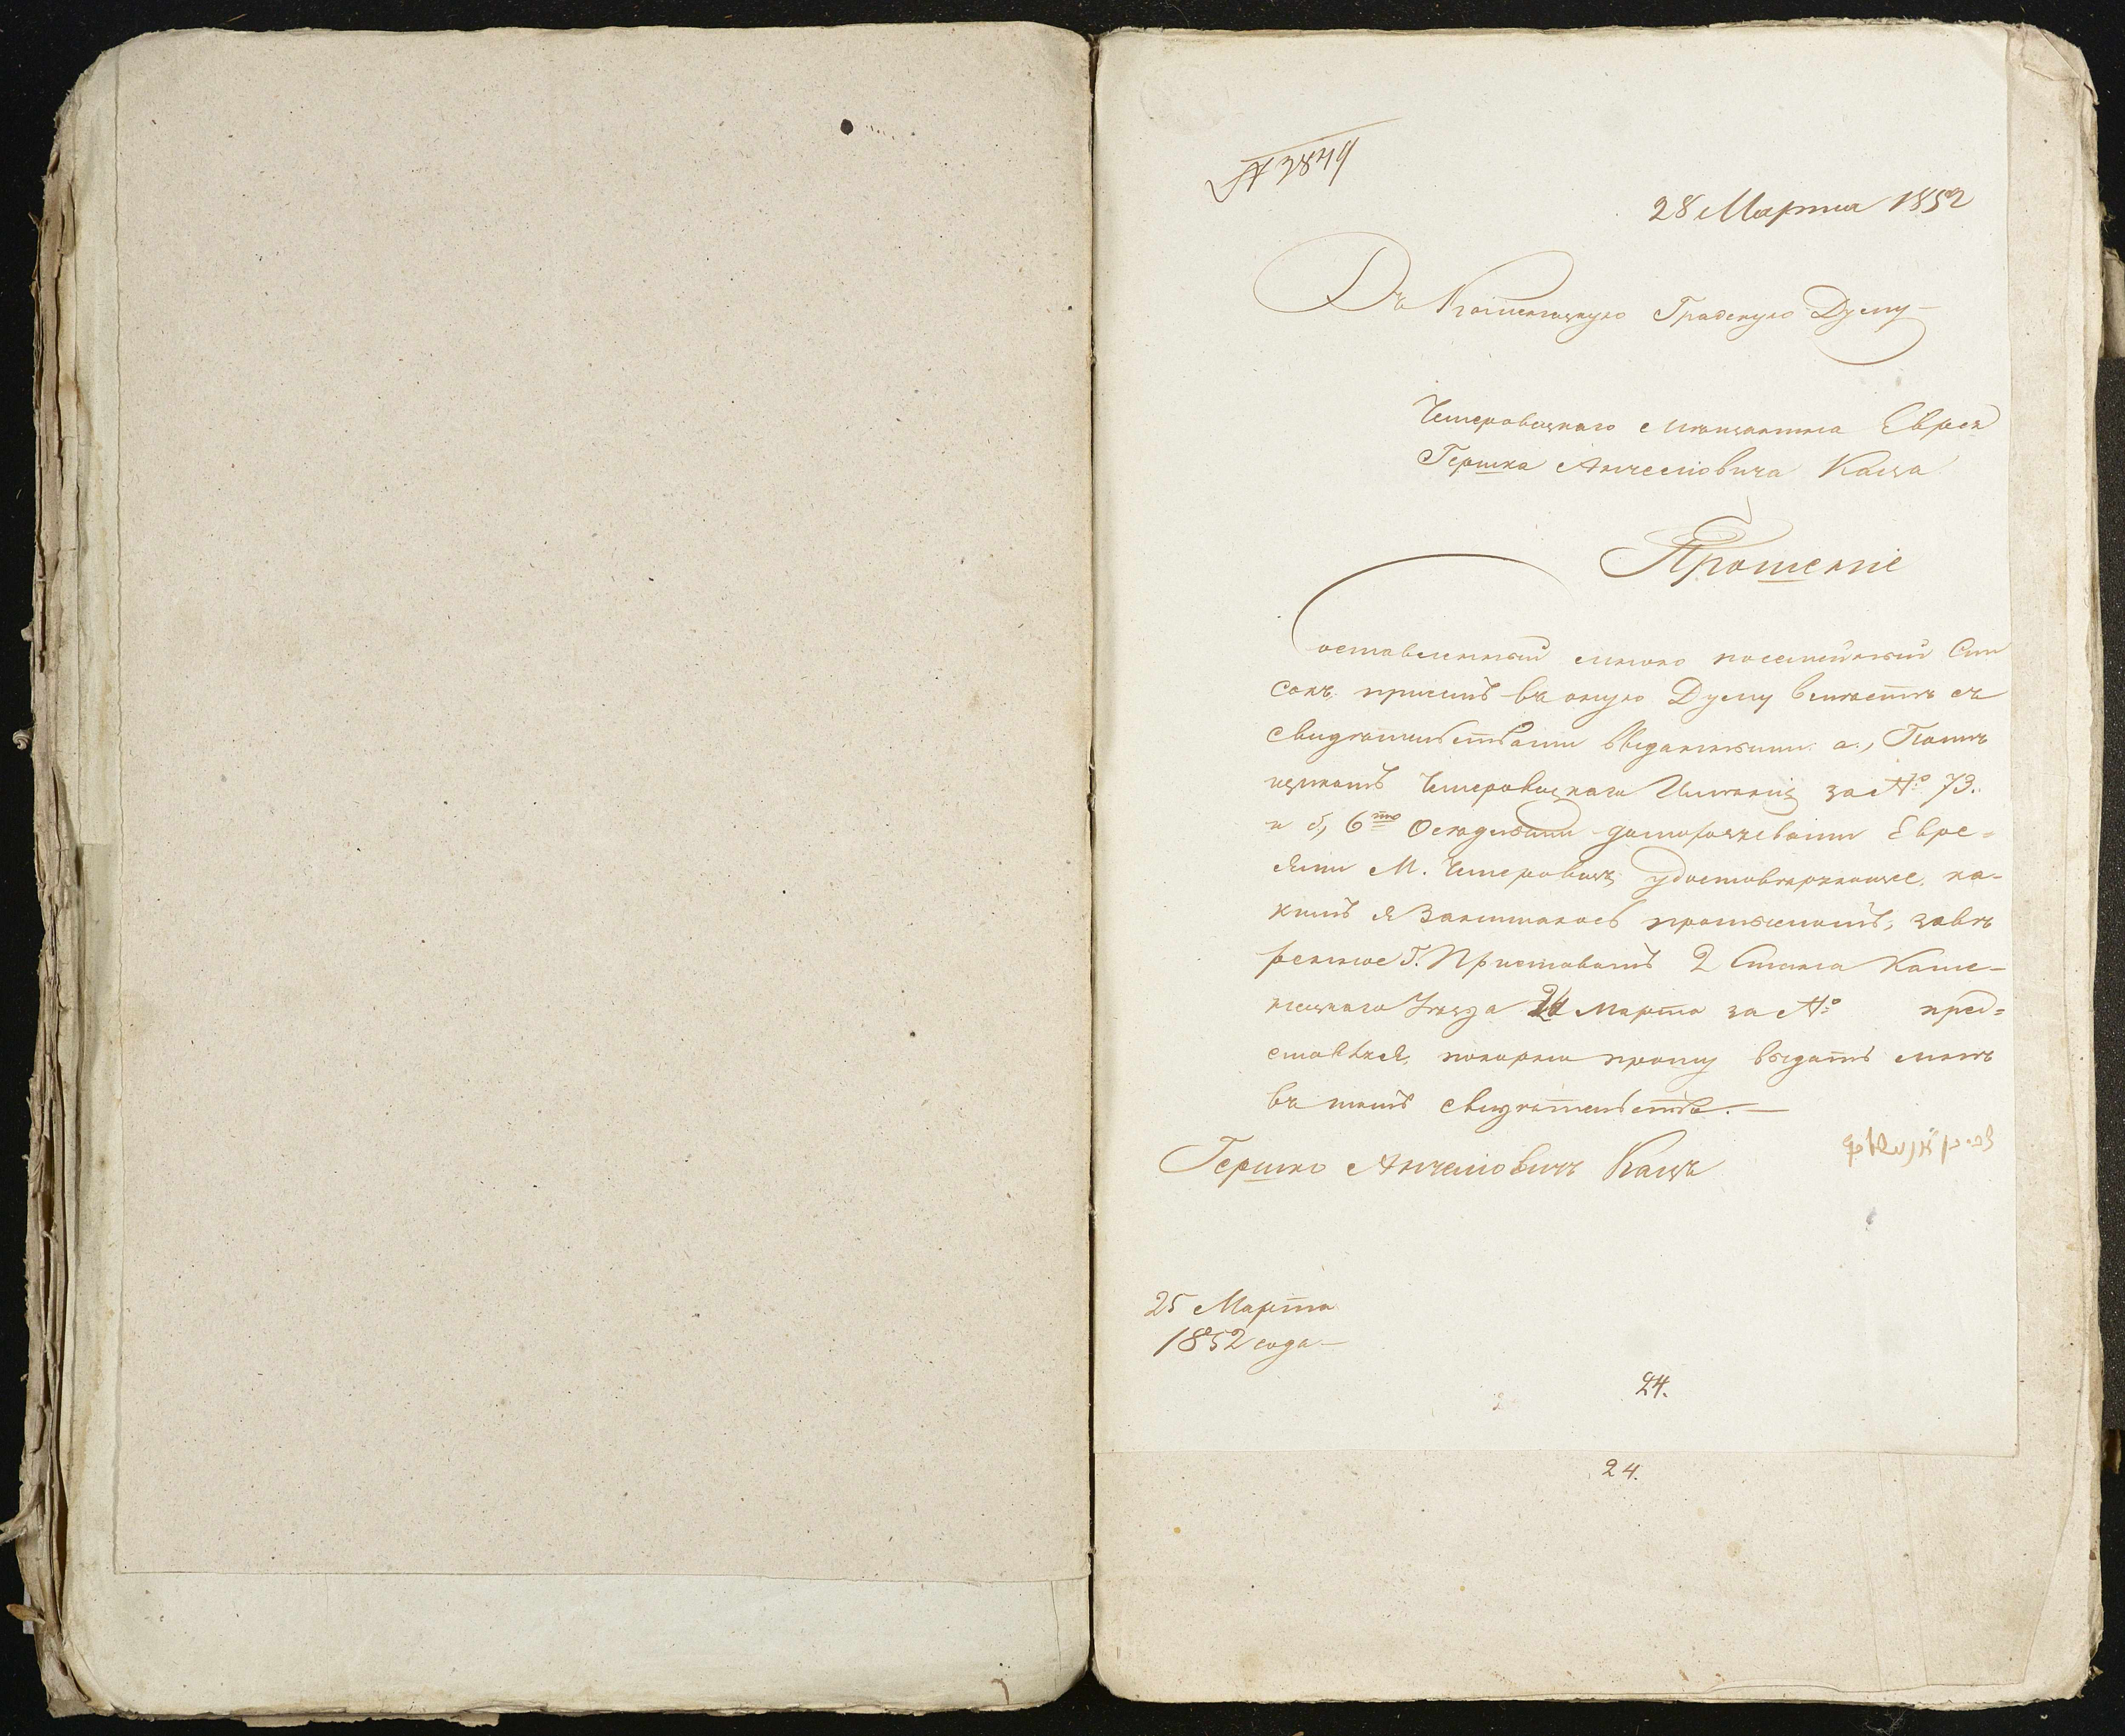 № 2849
28 Марта 1852
Въ Каменецкую Градскую Думу
Чемеровецкаго Мѣщанина Еврея
Гершка Анчелiовича Каца
Прошенiе
Составленный мною посемейный Спи
сокъ при семъ въ оную Думу вмѣстѣ съ
свидѣтельствами выданными: а, Полѣ
цѣкомъ Чемеровецкаго Имѣнiя за № 73.
и б, 6тю Осѣдлыми домохозяевами Евре=
ями М. Чемеровецъ удостовѣренное, ка-
кимъ я Занимаюсь промысломъ, завѣ
ренное Г. Приставомъ 2 Стана Каме-
нецкаго Уѣзда 24 Марта за № пред=
ставляя, покорно прошу выдать мнѣ
въ томъ свидѣтельство.—
Гершко Анчелiовичъ Кацъ
25 Марта
1852 года—
24.
24.